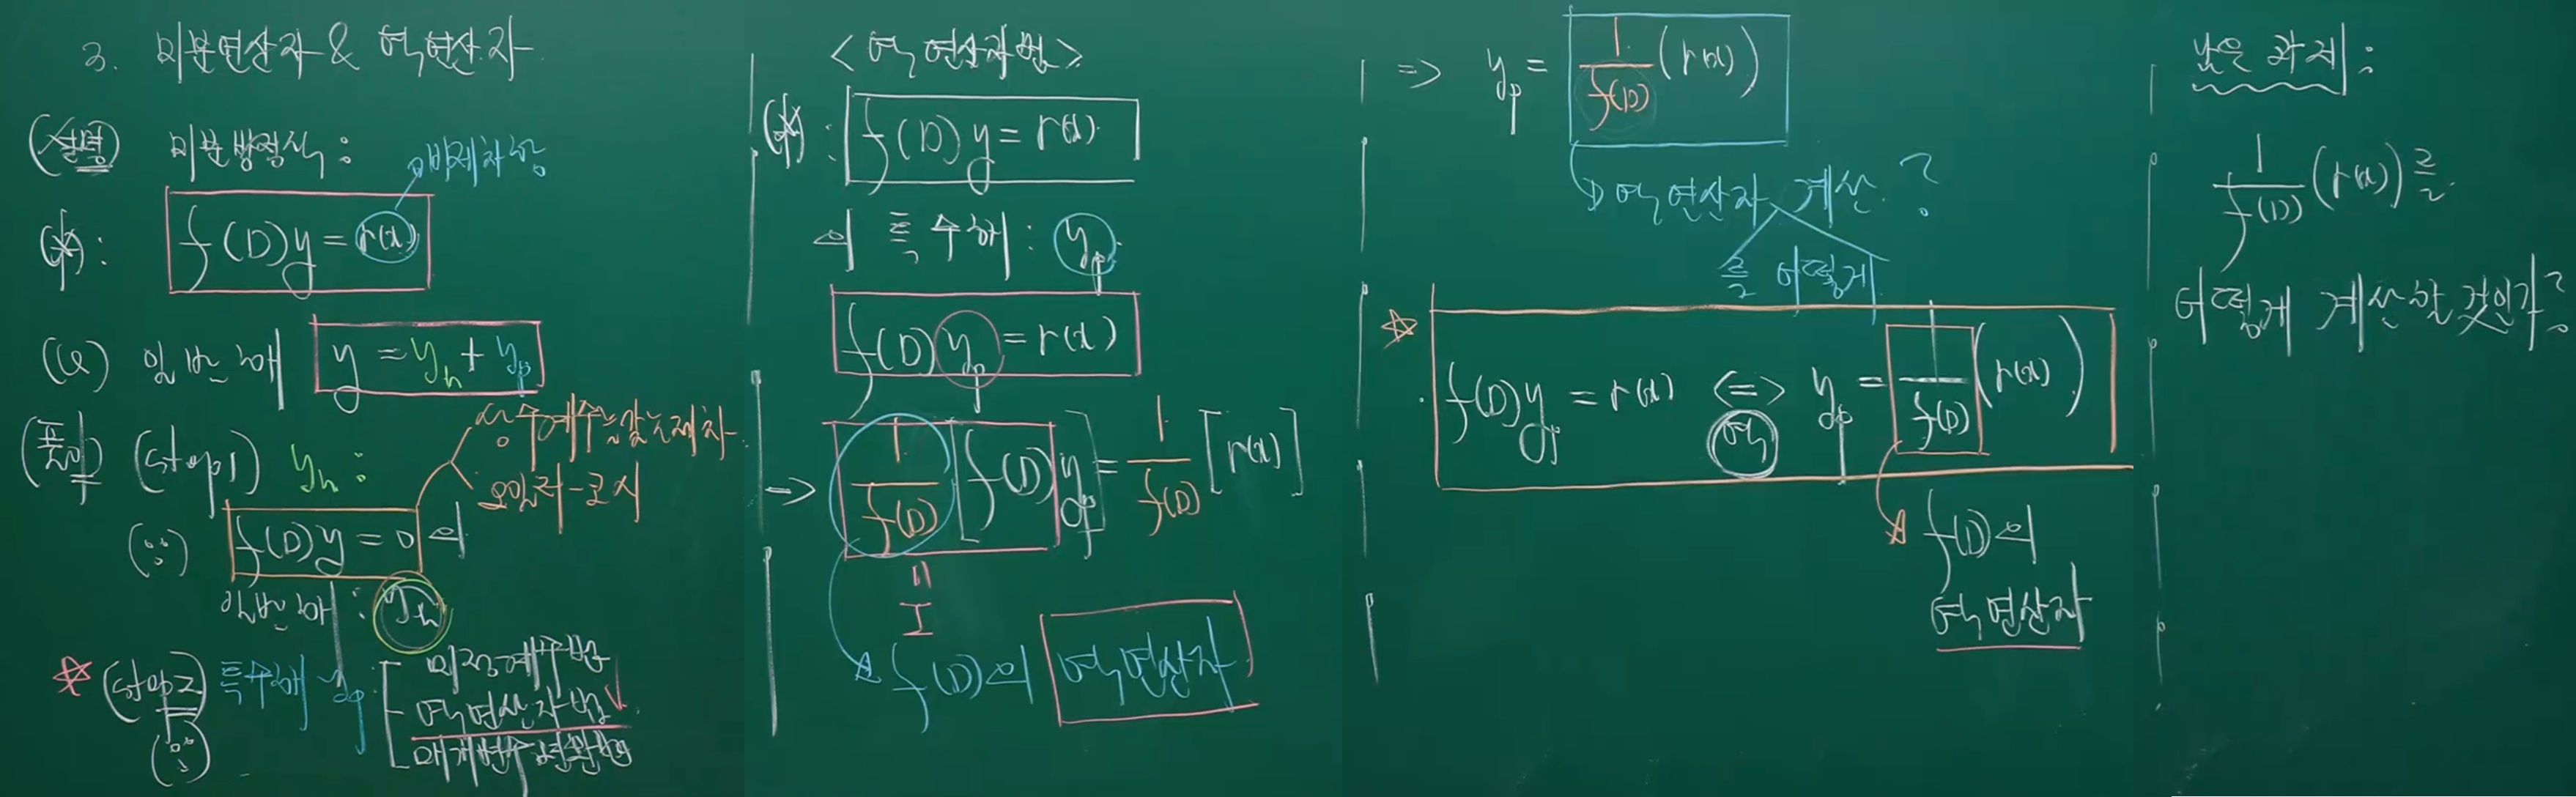 3. 미분연산자 & 역연산자
(설명) 미분방정식 :
(*) : f(D)y = r(x)
(Q) 일반해 y = y_h + y_p
(풀이) (step1) y_h :
상수계수 제차
오일러-코시
(∵) f(D)y = 0 의
일반해 : y_h
☆ (step2) 특수해 y_p
미정계수법
역연산자법 ✓
매개변수변환법
(∵)
<역연산자법>
(*) : f(D)y = r(x)
의 특수해 : y_p
f(D)y_p = r(x)
=> 1/f(D) [f(D)y_p] = 1/f(D) [r(x)]
" I
f(D)의 역연산자
=> y_p = 1/f(D) (r(x))
역연산자 계산 ?
를 어떻게
☆ f(D)y_p = r(x) <=> y_p = 1/f(D) (r(x))
역
f(D)의
역연산자
남은 과제 :
1/f(D) (r(x)) 를
어떻게 계산할 것인가?